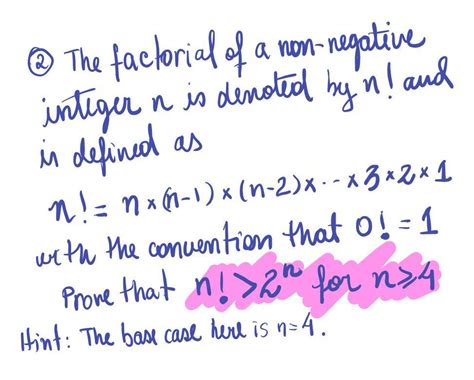 ② The factorial of a non-negative
integer n is denoted by n! and
is defined as
n! = n × (n-1) × (n-2) × ··· × 3 × 2 × 1
with the convention that 0! = 1
Prove that n! > 2ⁿ for n ≥ 4
Hint: The base case here is n = 4.